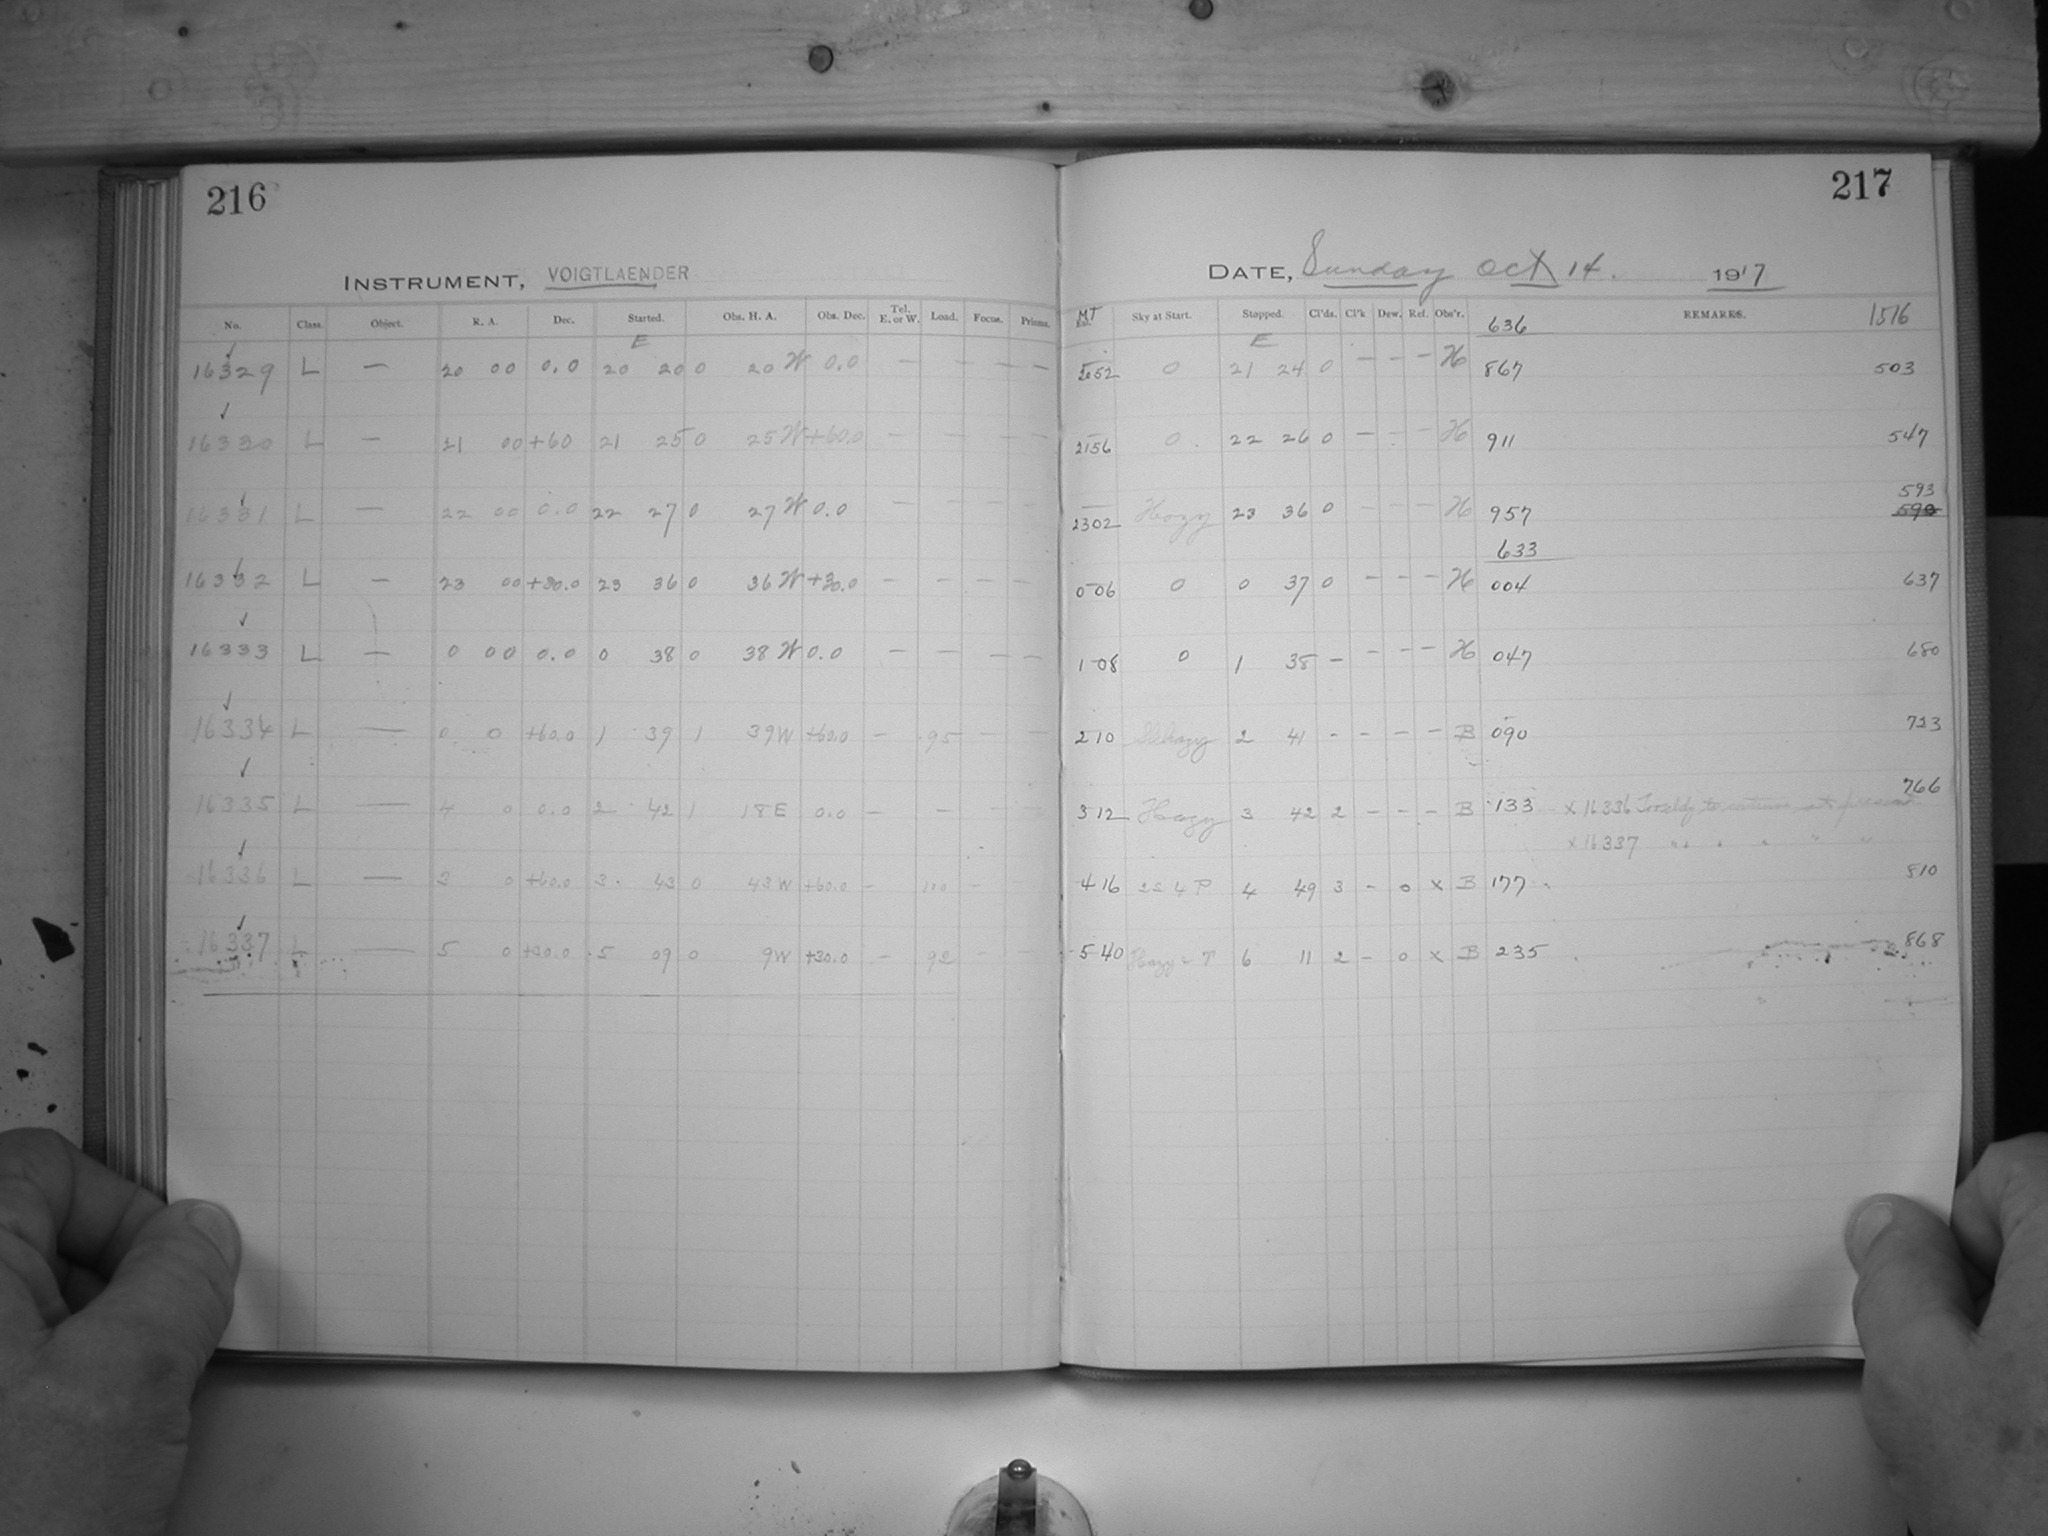 216
INSTRUMENT, VOIGTLAENDER
No. Class. Object. R. A. Dec. Started. Obs. H. A. Obs. Dec. Tel. E. or W. Load. Focus. Prisms.
E
16329 L — 20 00 0.0 20 20 0 20 W 0.0 — — — —
16330 L — 21 00 +60 21 25 0 25 W +60.0 — — — —
16331 L — 22 00 0.0 22 27 0 27 W 0.0 — — — —
16332 L — 23 00 +30.0 23 36 0 36 W +30.0 — — — —
16333 L — 0 00 0.0 0 38 0 38 W 0.0 — — — —
16334 L — 0 0 +60.0 1 39 1 39 W +60.0 — .95 — —
16335 L — 4 0 0.0 2 42 1 18 E 0.0 — — — —
16336 L — 3 0 +60.0 3 43 0 43 W +60.0 — 110 — —
16337 L — 5 0 +30.0 5 09 0 9 W +30.0 — 92 — —
217
DATE, Sunday Oct 14. 1917
MT Sky at Start. Stopped. Cl'ds. Cl'k Dew. Ref. Obs'r. REMARKS. 1516
636
E
2052 0 21 24 0 — — — H 867 503
2156 0 22 26 0 — — — H 911 547
593
2302 Hazy 23 36 0 — — — H 957 590
633
0 06 0 0 37 0 — — — H 004 637
1 08 0 1 38 — — — — H 047 680
2 10 2 41 — — — — B 090 723
766
3 12 Hazy 3 42 2 — — — B 133 x 16336 to at
x 16337 " " " " "
4 16 4 49 3 — 0 x B 177 810
5 40 Hazy 6 11 2 — 0 x B 235 868